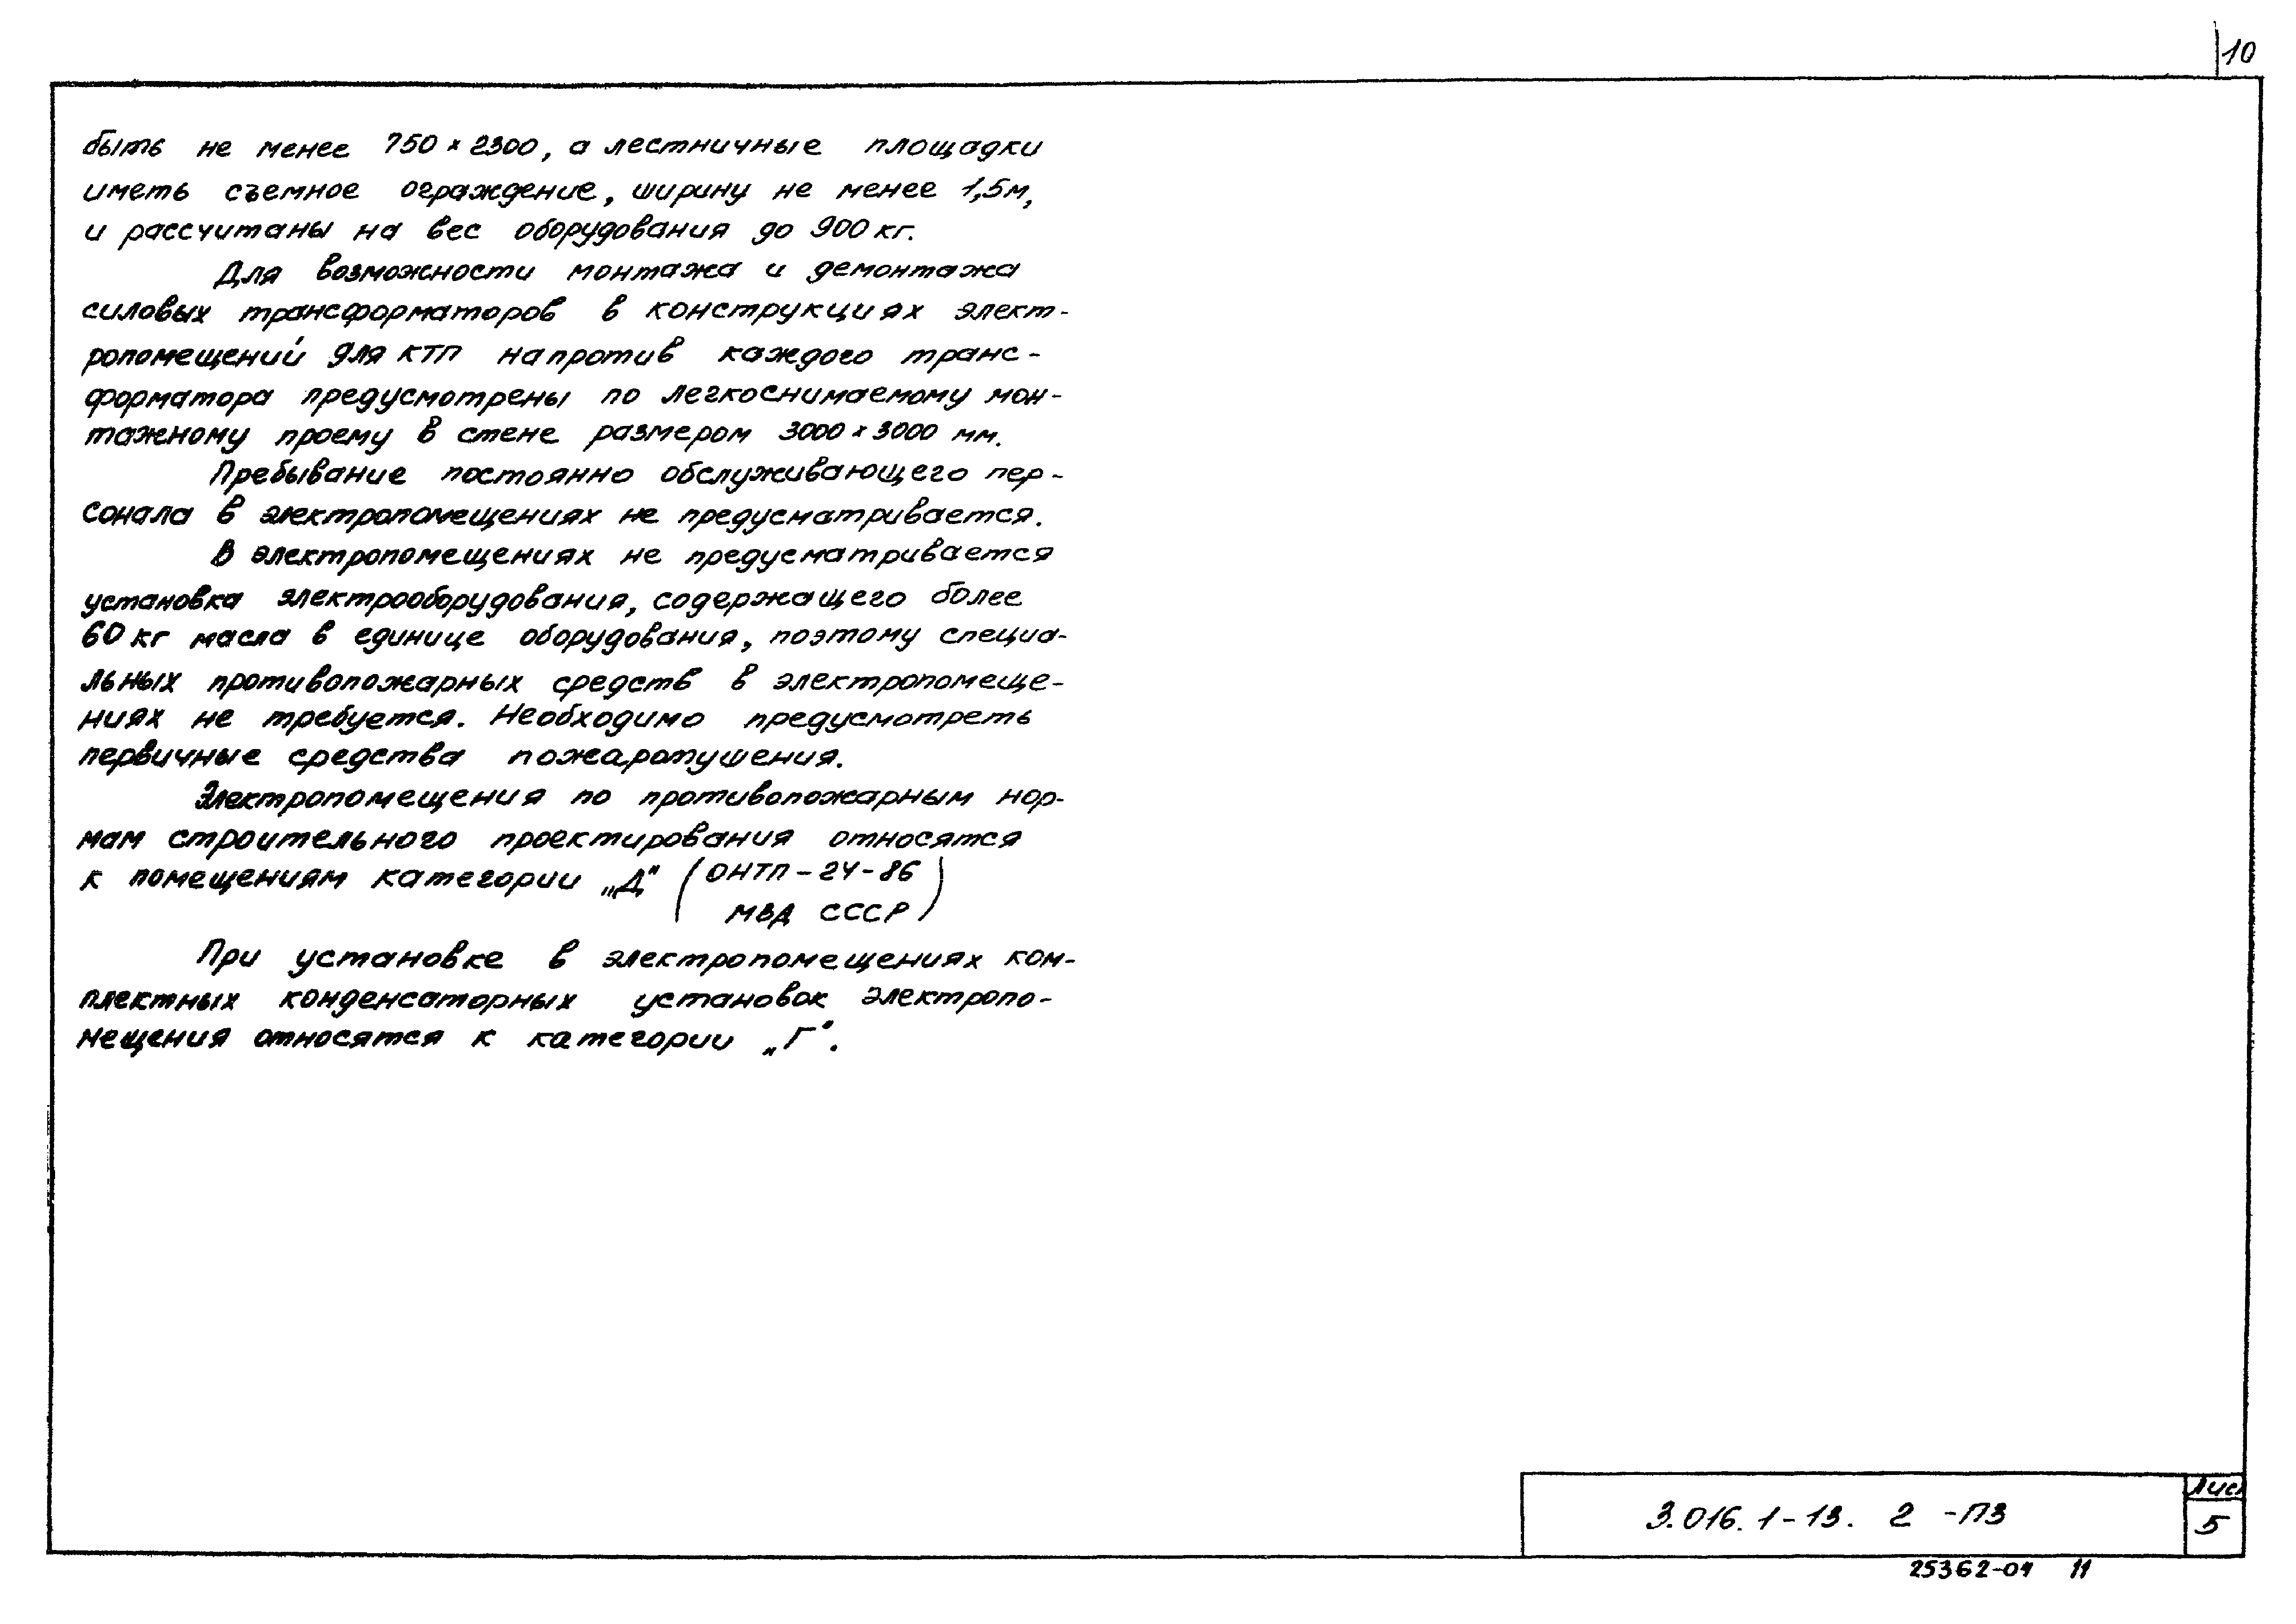 10
быть не менее 750 × 2300, а лестничные площадки
иметь съемное ограждение, ширину не менее 1,5м,
и рассчитаны на вес оборудования до 900 кг.
Для возможности монтажа и демонтажа
силовых трансформаторов в конструкциях элект-
ропомещений для КТП напротив каждого транс-
форматора предусмотрены по легкоснимаемому мон-
тажному проему в стене размером 3000 × 3000 мм.
Пребывание постоянно обслуживающего пер-
сонала в электропомещениях не предусматривается.
В электропомещениях не предусматривается
установка электрооборудования, содержащего более
60 кг масла в единице оборудования, поэтому специа-
льных противопожарных средств в электропомеще-
ниях не требуется. Необходимо предусмотреть
первичные средства пожаротушения.
Электропомещения по противопожарным нор-
мам строительного проектирования относятся
к помещениям категории „Д" (ОНТП-24-86
МВД СССР)
При установке в электропомещениях ком-
плектных конденсаторных установок электропо-
мещения относятся к категории „Г".
3.016.1-13. 2 -ПЗ
Лист
5
25362-04 11